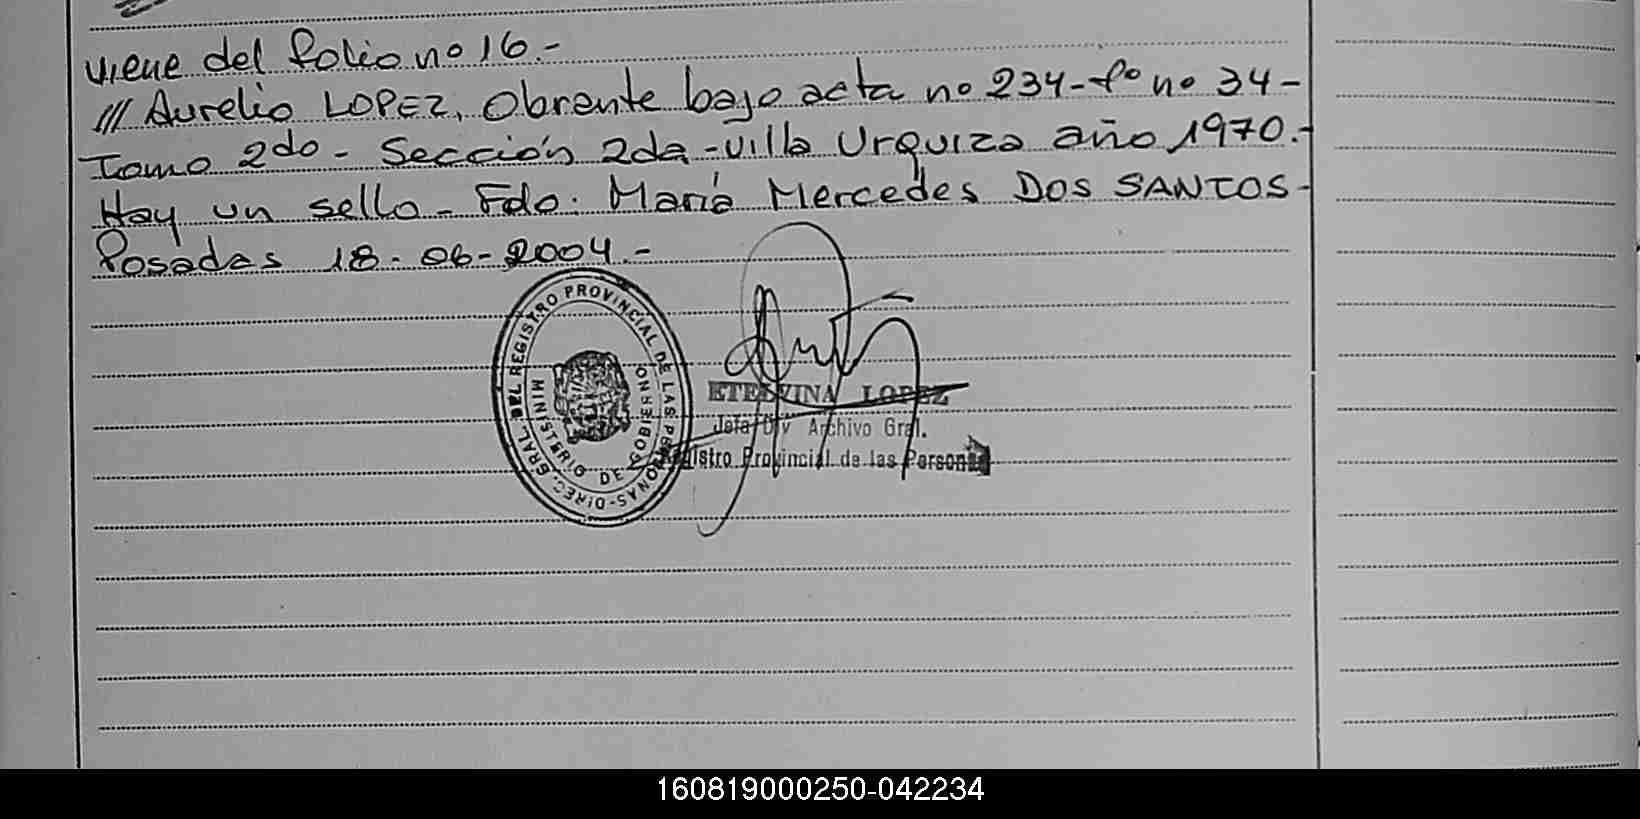 viene del folio nº 16.-
/// Aurelio LOPEZ, Obrante bajo acta nº 234-fº nº 34-
Tomo 2do - Sección 2da - Villa Urquiza año 1970.-
Hay un sello - Fdo. María Mercedes DOS SANTOS-
Posadas 18-06-2004.-
GRAL. DEL REGISTRO PROVINCIAL DE LAS PERSONAS-DIREC.
MINISTERIO DE GOBIERNO
ETELVINA LOPEZ
Jefa Div Archivo Gral.
Registro Provincial de las Personas
160819000250-042234